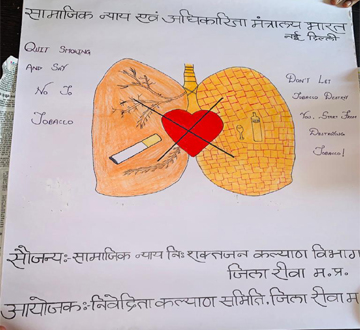 सामाजिक न्याय एवं अधिकारिता मंत्रालय भारत
नई दिल्ली
QUIT SMOKING
AND SAY
NO TO
TOBACCO
DON'T LET
TOBACCO DESTROY
YOU, START FROM
DESTROYING
TOBACCO!
सौजन्य:- सामाजिक न्याय नि:शक्तजन कल्याण विभाग
जिला रीवा म.प्र.
आयोजक:- निवेदिता कल्याण समिति. जिला रीवा म